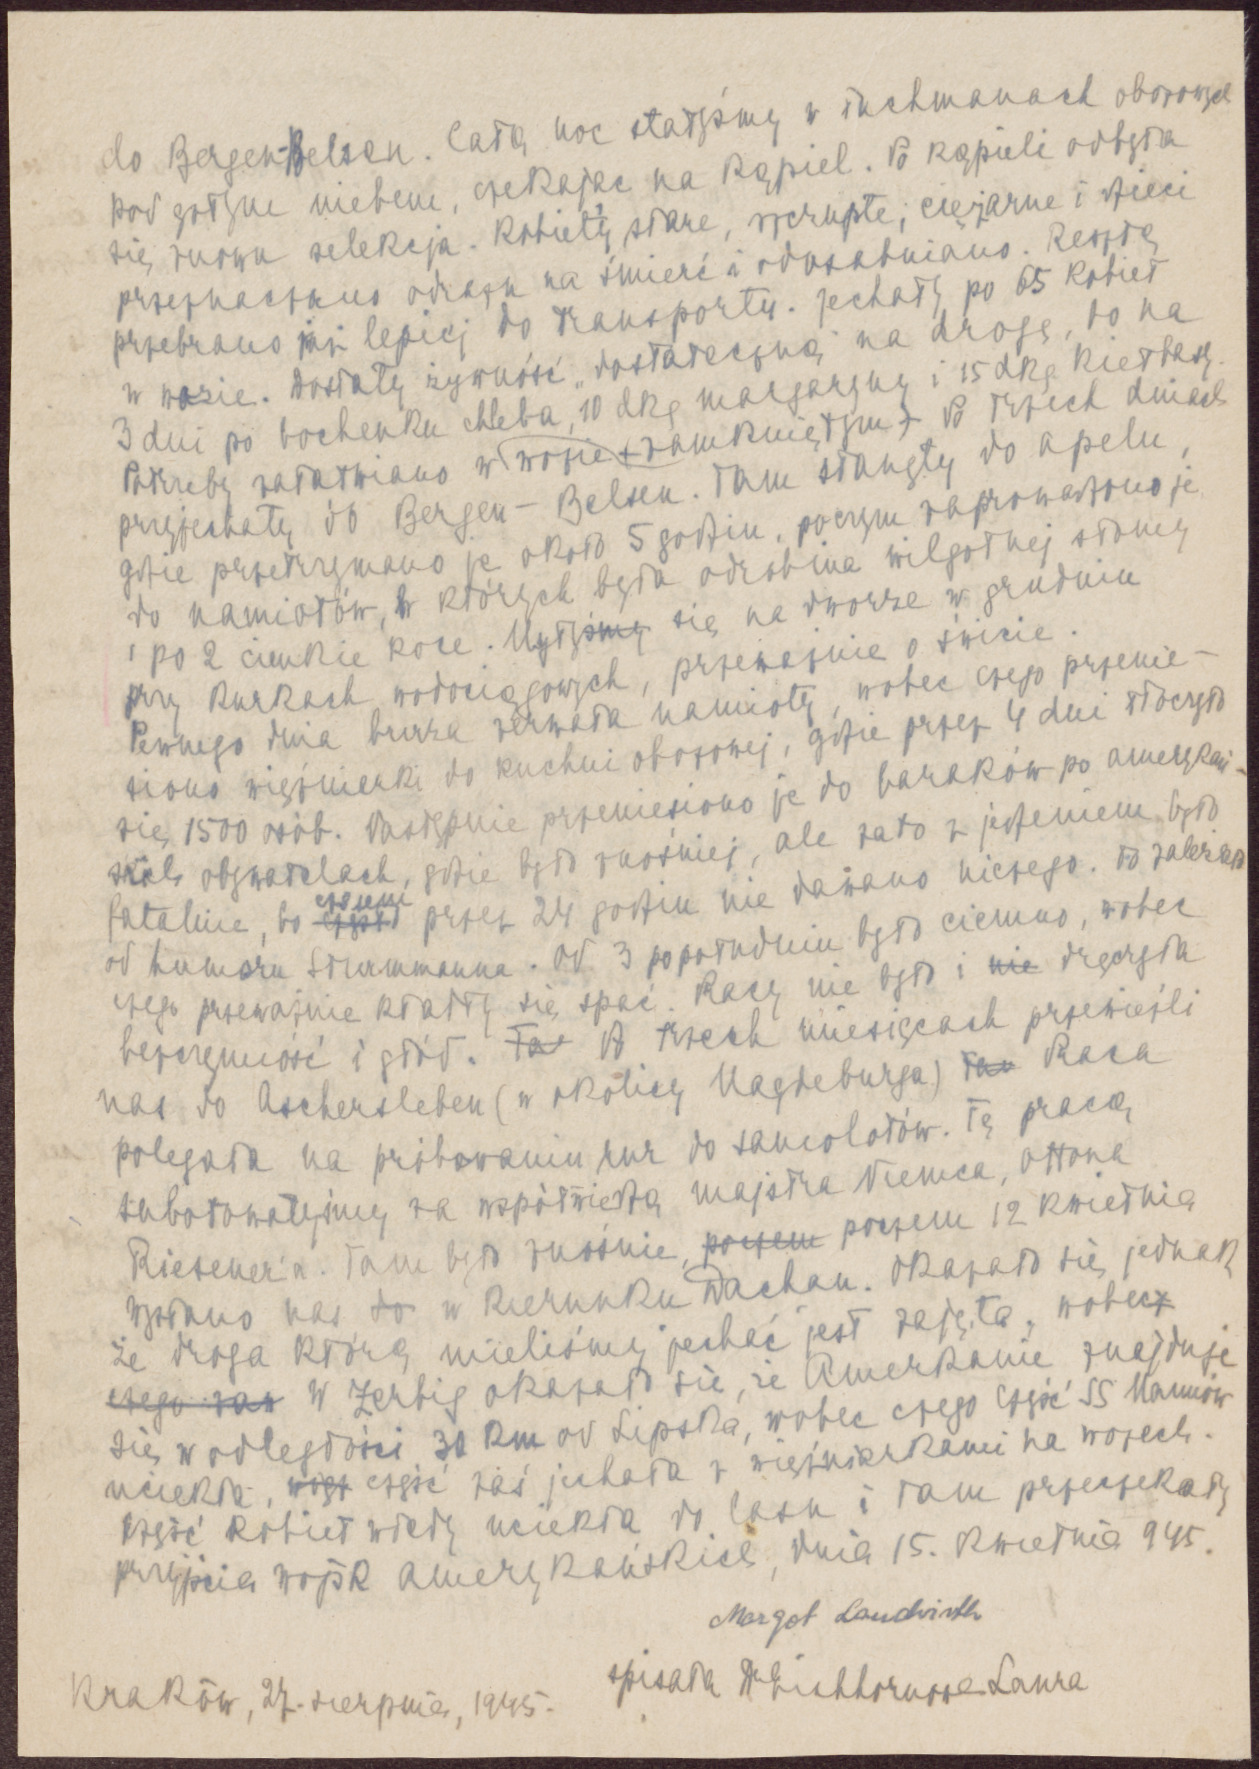 do Bergen-Belsen. Całą noc stałyśmy w łachmanach obozowych
pod gołym niebem, czekając na kąpiel. Po kąpieli odbyła
się znowu selekcja. Kobiety stare, ciężarne i dzieci
przeznaczono odrazu na śmierć i odosabniano. Resztę
przebrano już lepiej do transportu. Jechały po 65 kobiet
w wozie. Dostały żywność „dostateczną na drogę, bo na
3 dni po bochenku chleba, 10 dkg margaryny i 15 dkg kiełbasy.
Potrzeby załatwiano w wozie zamkniętym. Po trzech dniach
przyjechały do Bergen-Belsen. Tam stanęły do apelu,
gdzie przetrzymano je około 5 godzin, poczym zaprowadzono je
do namiotów, w których była odrobina wilgotnej słomy
i po 2 cienkie koce. Myłyśmy się na dworze w grudniu
przy kurkach wodociągowych, przeważnie o świcie.
Pewnego dnia burza zerwała namioty, wobec czego przenie-
siono więźnierki do kuchni obozowej, gdzie przez 4 dni tłoczyło
się 1500 osób. Następnie przeniesiono je do baraków po amerykań-
skich obywatelach, gdzie było znośniej, ale zato z jedzeniem było
fatalnie, bo czasem przez 24 godzin nie dawano niczego. To zależało
od humoru Sturmmanna. Od 3 popołudniu było ciemno, wobec
czego przeważnie kładły się spać. Pracy nie było i nie dręczyła
bezczynność i głód. Po trzech miesiącach przewieźli
nas do Aschersleben (w okolicy Magdeburga) Praca
polegała na próbowaniu rur do samolotów. Tę pracę
sabotowałyśmy za współwiedzą majstra Niemca, Ottona
Riesener'a. Tam było znośnie, poczem poczem 12 kwietnia
wysłano nas do w kierunku Dachau. Okazało się jednak
że droga którą mieliśmy jechać jest zajęta, wobec
czego zaś w Zerbig okazało się, że Amerkanie znajduje
się w odległości 30 km od Lipska, wobec czego część SS Mannów
uciekła, część zaś jechała z więźniarkami na wozech.
Część kobiet wtedy uciekła do lasu i tam przeczekały
przyjścia wojsk amerykańskich, dnia 15. kwietnia 945.
Margot Landwirth
spisała Dr Eichhornowa Laura
Kraków, 27. sierpnia, 1945.